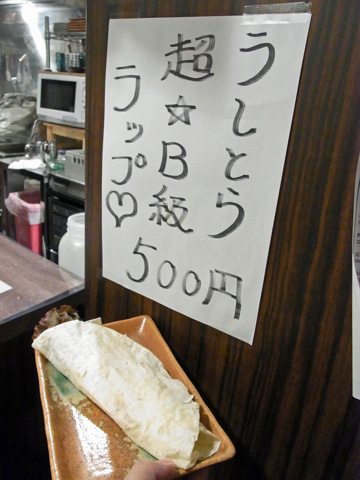 うしとら
超☆B級
ラップ♡
500円